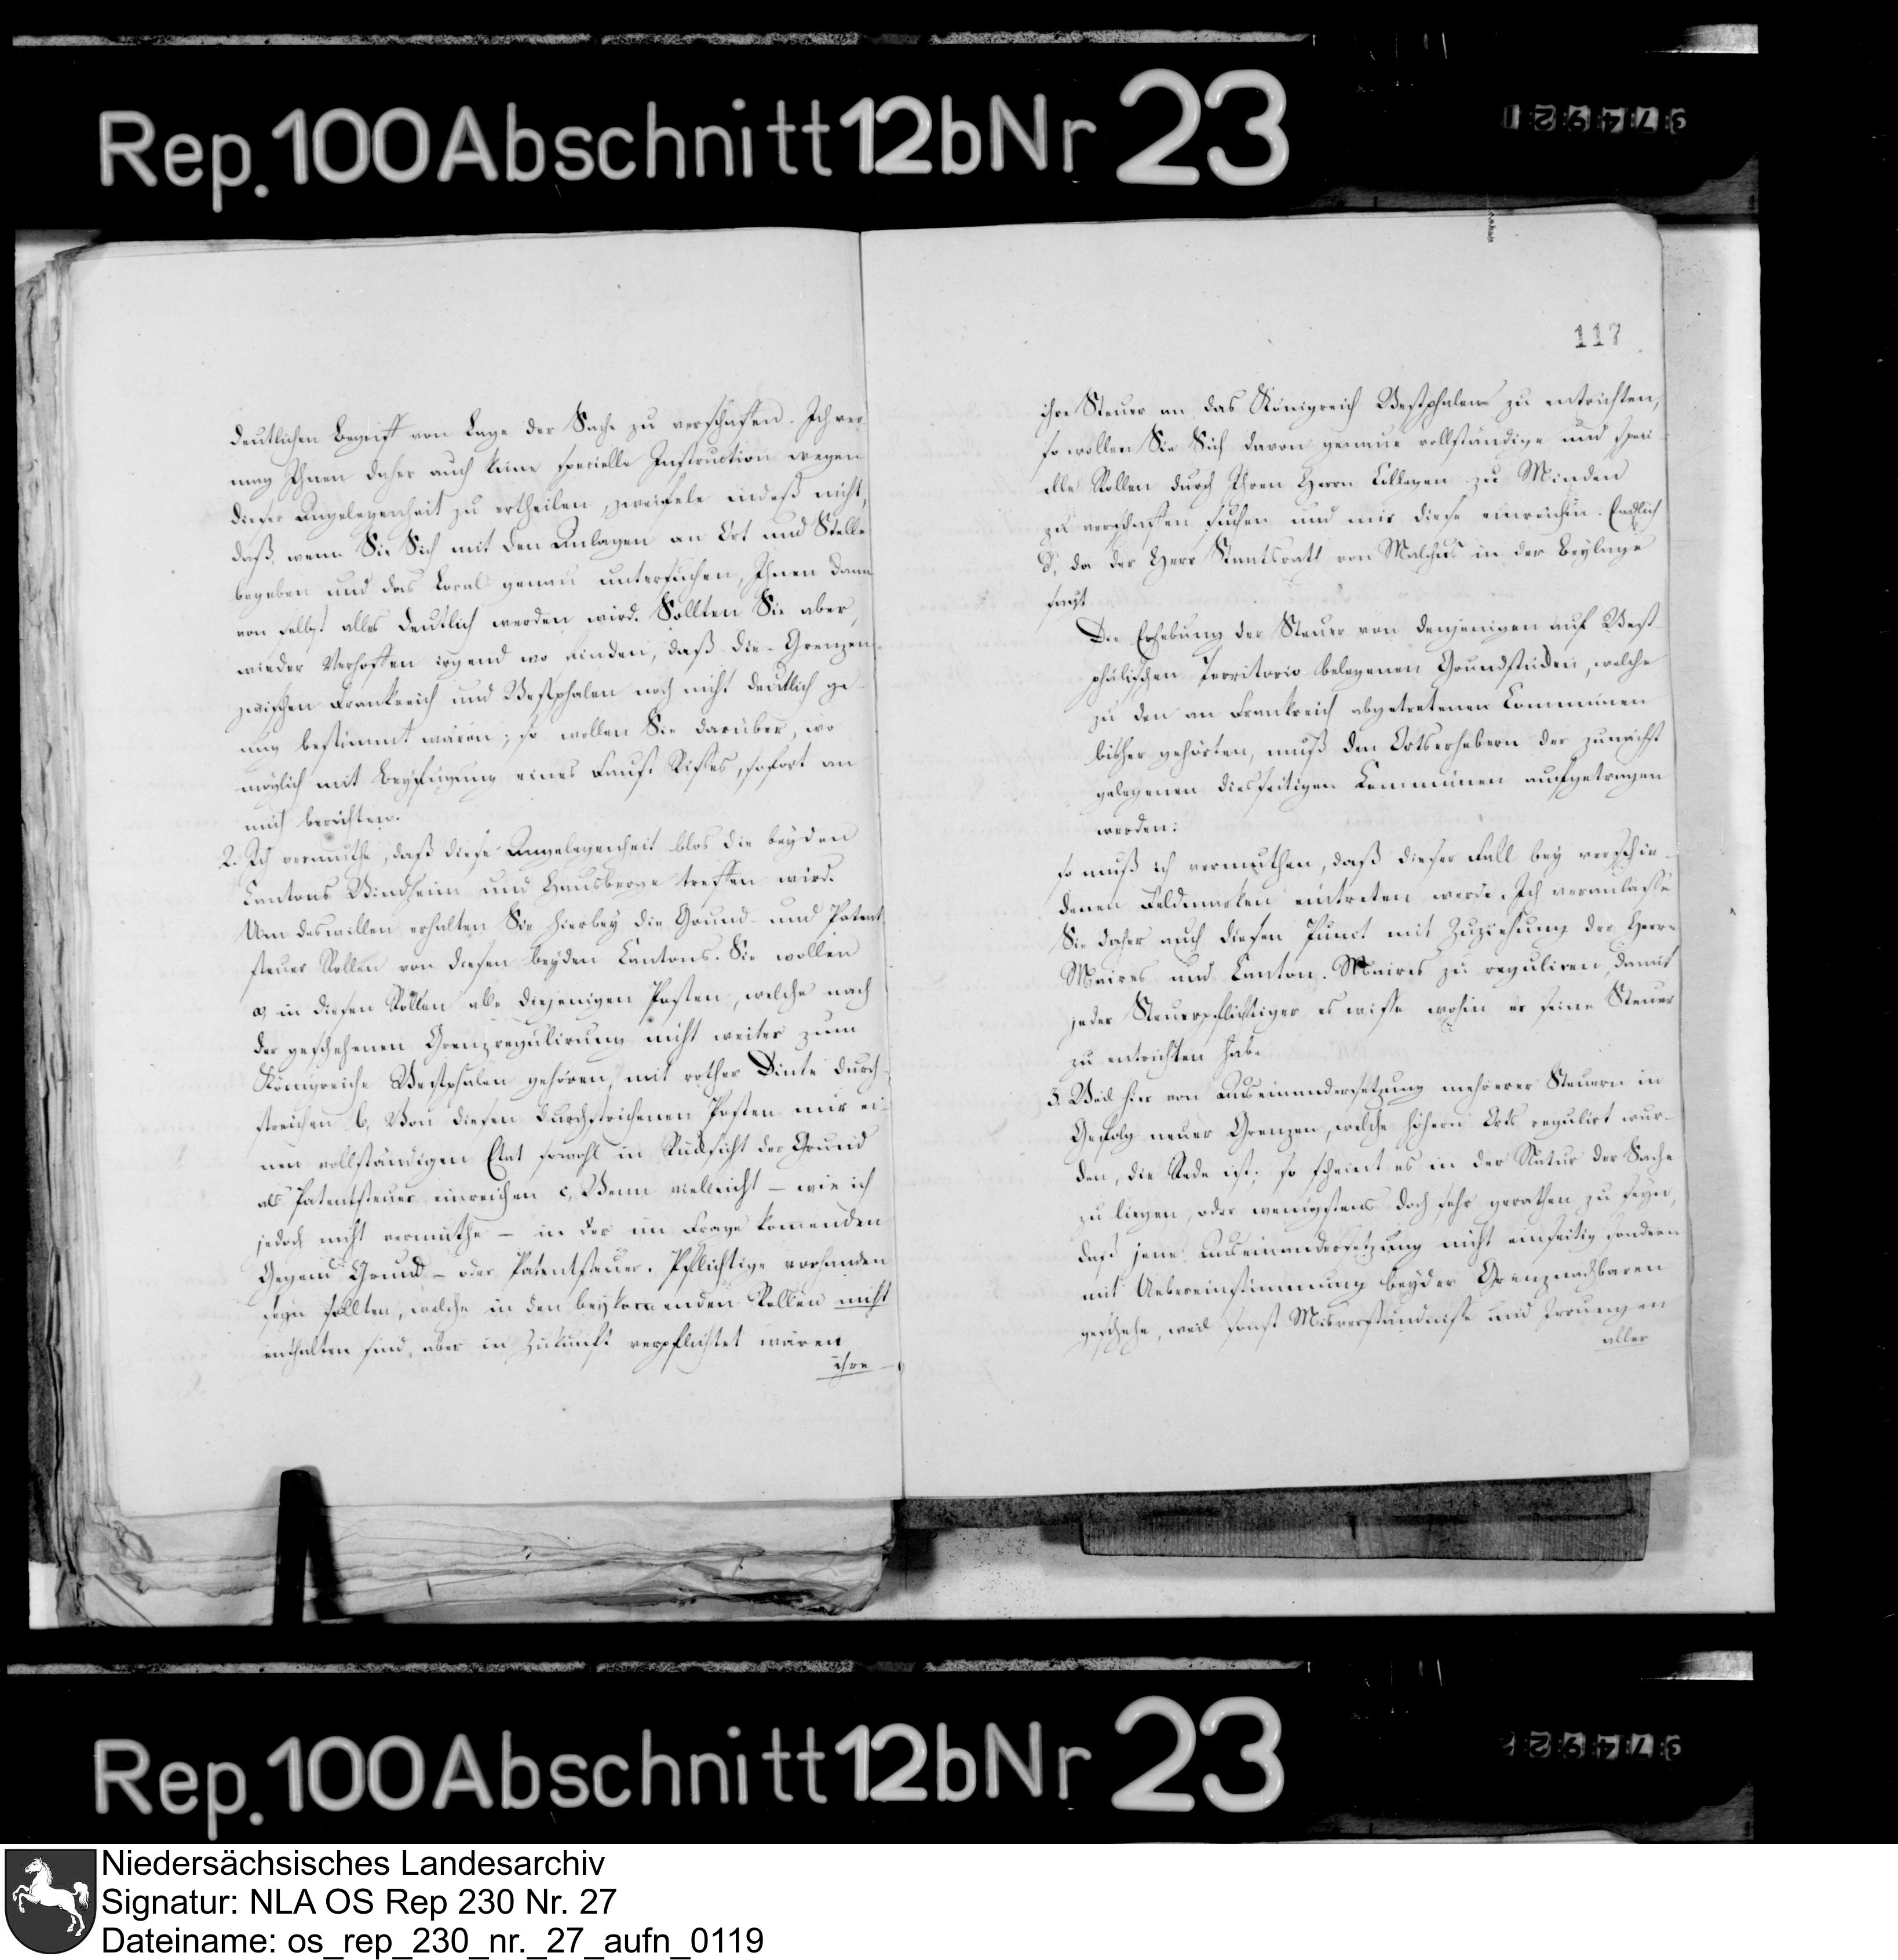 Rep. 100 Abschnitt 12b Nr 23
117
deutlichen Begriff von Lage der Sache zu verschaffen. Ich ver
mag Ihnen daher auch keine specielle Instruction wegen
dieser Angelegenheit zu ertheilen, zweifele indeß nicht,
daß, wenn Sie Sich mit den Anlagen an Ort und Stelle
begeben und das Local genau untersuchen, Ihnen dann
von selbst alles deutlich werden wird. Sollten Sie aber,
wieder Verhoffen irgend wo finden, daß die Grenzen
zwischen Frankreich und Westphalen noch nicht deutlich ge-
nug bestimmt wären; so wollen Sie darüber, wo
möglich mit Beyfügung eines Faust Risses, sofort an
mich berichten.
2. Ich vermuthe, daß diese Angelegenheit blos die beyden
Cantons Windheim und Hausberge treffen wird.
Um deswillen erhalten Sie hierbey die Grund- und Patent
steuer Rollen von diesen beyden Cantons. Sie wollen
a, in diesen Rollen alle diejenigen Posten, welche nach
der geschehenen Grenzregulirung nicht weiter zum
Königreiche Westphalen gehören, mit rother Dinte durch-
streichen b, Von diesen durchstrichenen Posten mir ei-
nen vollständigen Etat sowohl in Rücksicht der Grund
als Patentsteuer einreichen c, Wenn vielleicht – wie ich
jedoch nicht vermuthe – in der in Frage kommenden
Gegend Grund – oder Patentsteuer. Pflichtige vorhanden
seyn sollten, welche in den beykommenden Rollen nicht
enthalten sind, aber in Zukunft verpflichtet wären
ihre
ihre Steuer an das Königreich Westphalen zu entrichten,
so wollen Sie Sich davon genaue vollständige und speci-
elle Rollen durch Ihren Herrn Collegen zu Minden
zu verschaffen suchen und mir diese einreichen. Endlich
d, da der Herr Staatsrath von Malchus in der Beylage
sagt
Die Erhebung der Steuer von denjenigen auf West-
phälischen Territorio belegenen Grundstücken, welche
zu den an Frankreich abgetretenen Communen
bisher gehörten, muß den Ortserhebern der zunächst
gelegenen diesseitigen Communen aufgetragen
werden:
so muß ich vermuthen, daß dieser Fall bey verschie-
denen Feldmarken eintreten werde. Ich veranlasse
Sie daher auch diesen Punct mit Zuziehung der Herrn
Maires und Canton. Maires zu reguliren, damit
jeder Steuerpflichtiger es wisse wohin er seine Steuer
zu entrichten habe
3. Weil hier von Auseinandersetzung mehrerer Steuern in
Gefolg neuer Grenzen, welche höhern Orts regulirt wur-
den, die Rede ist; so scheint es in der Natur der Sache
zu liegen, oder wenigstens doch sehr gerathen zu seyn,
daß jene Auseinandersetzung nicht einseitig sondern
mit Uebereinstimmung beyder Grenznachbaren
geschehe, weil sonst Misverständnisse und Irrungen
aller
Rep. 100 Abschnitt 12b Nr 23
Niedersächsisches Landesarchiv
Signatur: NLA OS Rep 230 Nr. 27
Dateiname: os_rep_230_nr._27_aufn_0119